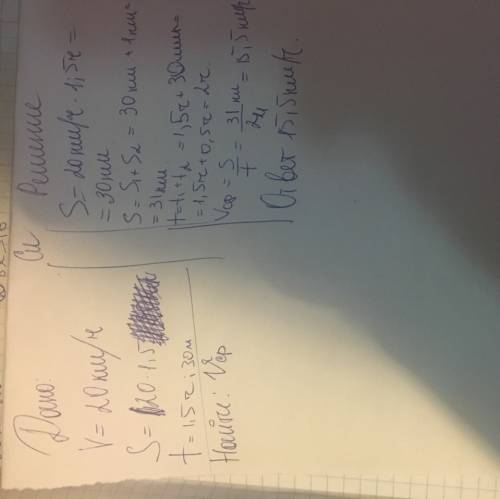 Дано:
V = 20 км/ч
S = 20 · 1,5
t = 1,5ч ; 30м
Найти: Vср
Си
Решение
S = 20км/ч · 1,5ч =
= 30км
S = S₁ + S₂ = 30км + 1км =
= 31км
t = t₁ + t₂ = 1,5ч + 30мин =
= 1,5ч + 0,5ч = 2ч
Vср = S/t = 31 км/2ч = 15,5км/ч
Ответ 15,5км/ч.